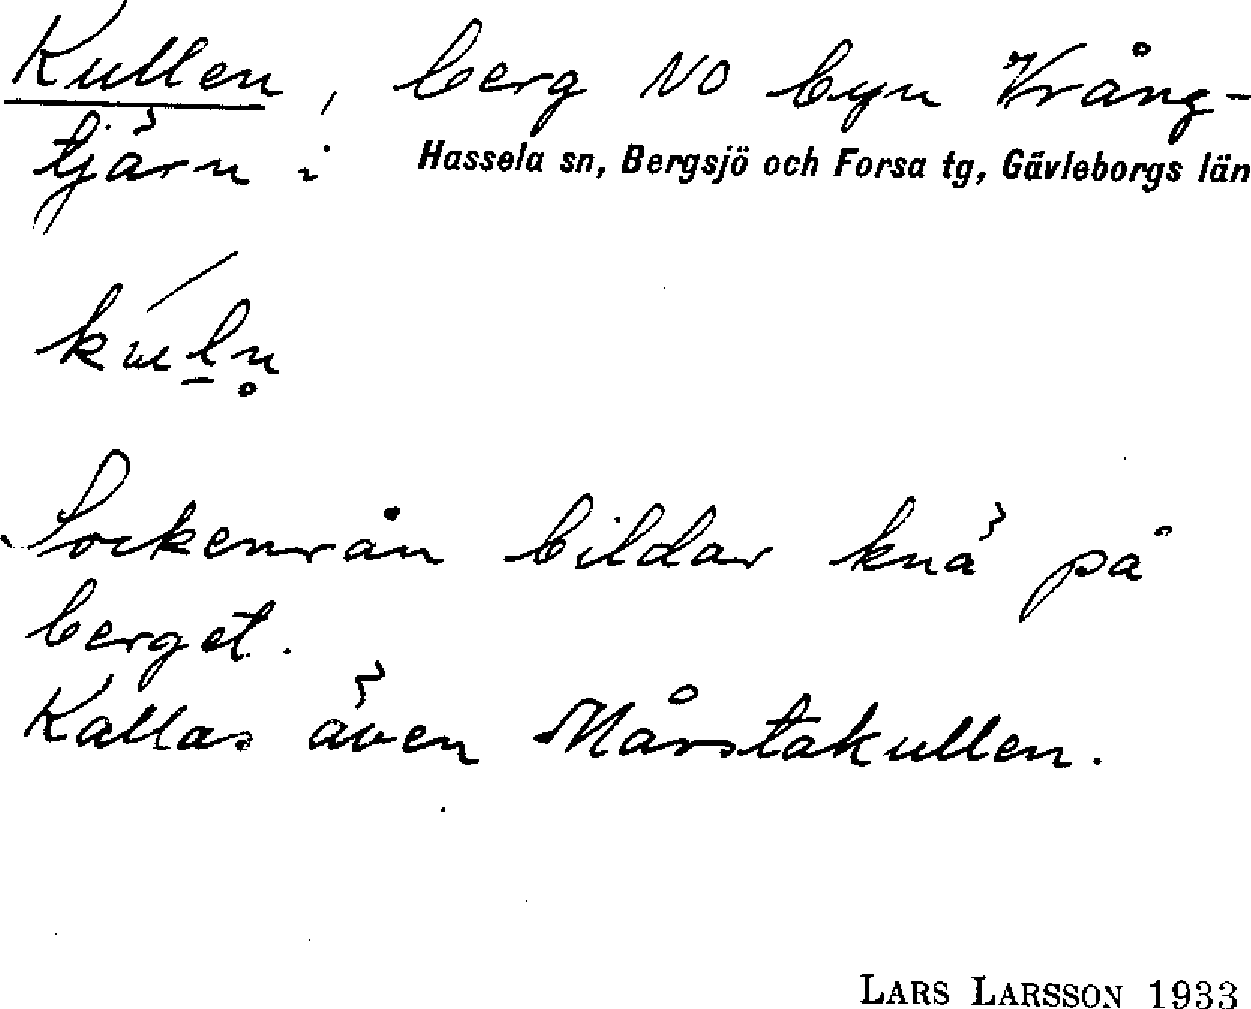 Kullen, berg NO byn Vrång-
tjärn i Hassela sn, Bergsjö och Forsa tg, Gävleborgs län
Sockenrån bildar knä på
berget.
Kallas även Mårstakullen.
LARS LARSSON 1933